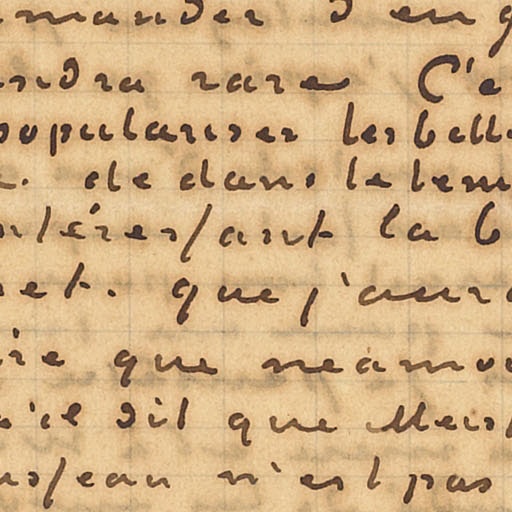 mander d'en
ndra rare C'e
populariser les bell
de dans le tem
intéressant la b
et. que j'aura
ire que neamo
il dit que Mers
n'est pas